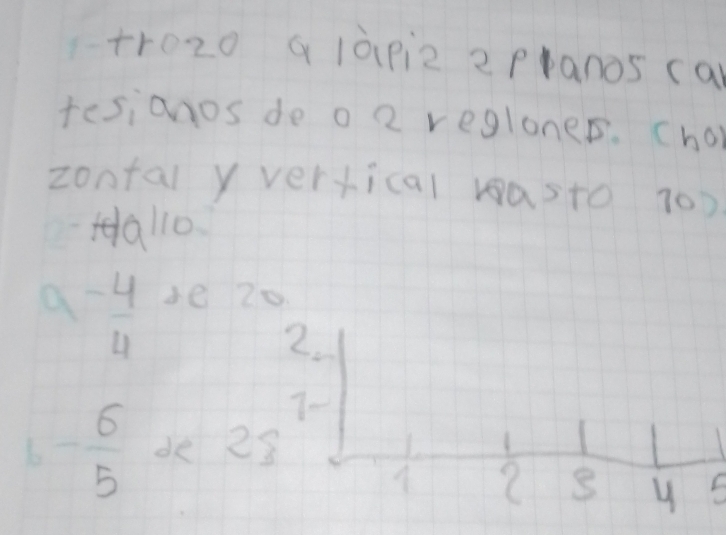 1-trozo a làpiz 2 planos car
tesianos de 0 2 reglones. (hor
zontal y vertical hasto 10)
2-Hallo.
a-4/4 de 20
b-6/5 de 28
2
1
1 2 3 4 5